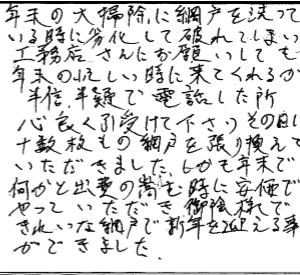 年末の大掃除に網戸を洗って
いる時に劣化して破れてしまい
工務店さんにお願いしても
年末の忙しい時に来てくれるか
半信半疑で電話した所
心良く引受けて下さりその日に
十数枚もの網戸を張り換えて
いただきました。しかも年末で
何かと出費の嵩む時に安価で
やっていただき御陰様で
きれいな網戸で新年を迎える事
ができました。